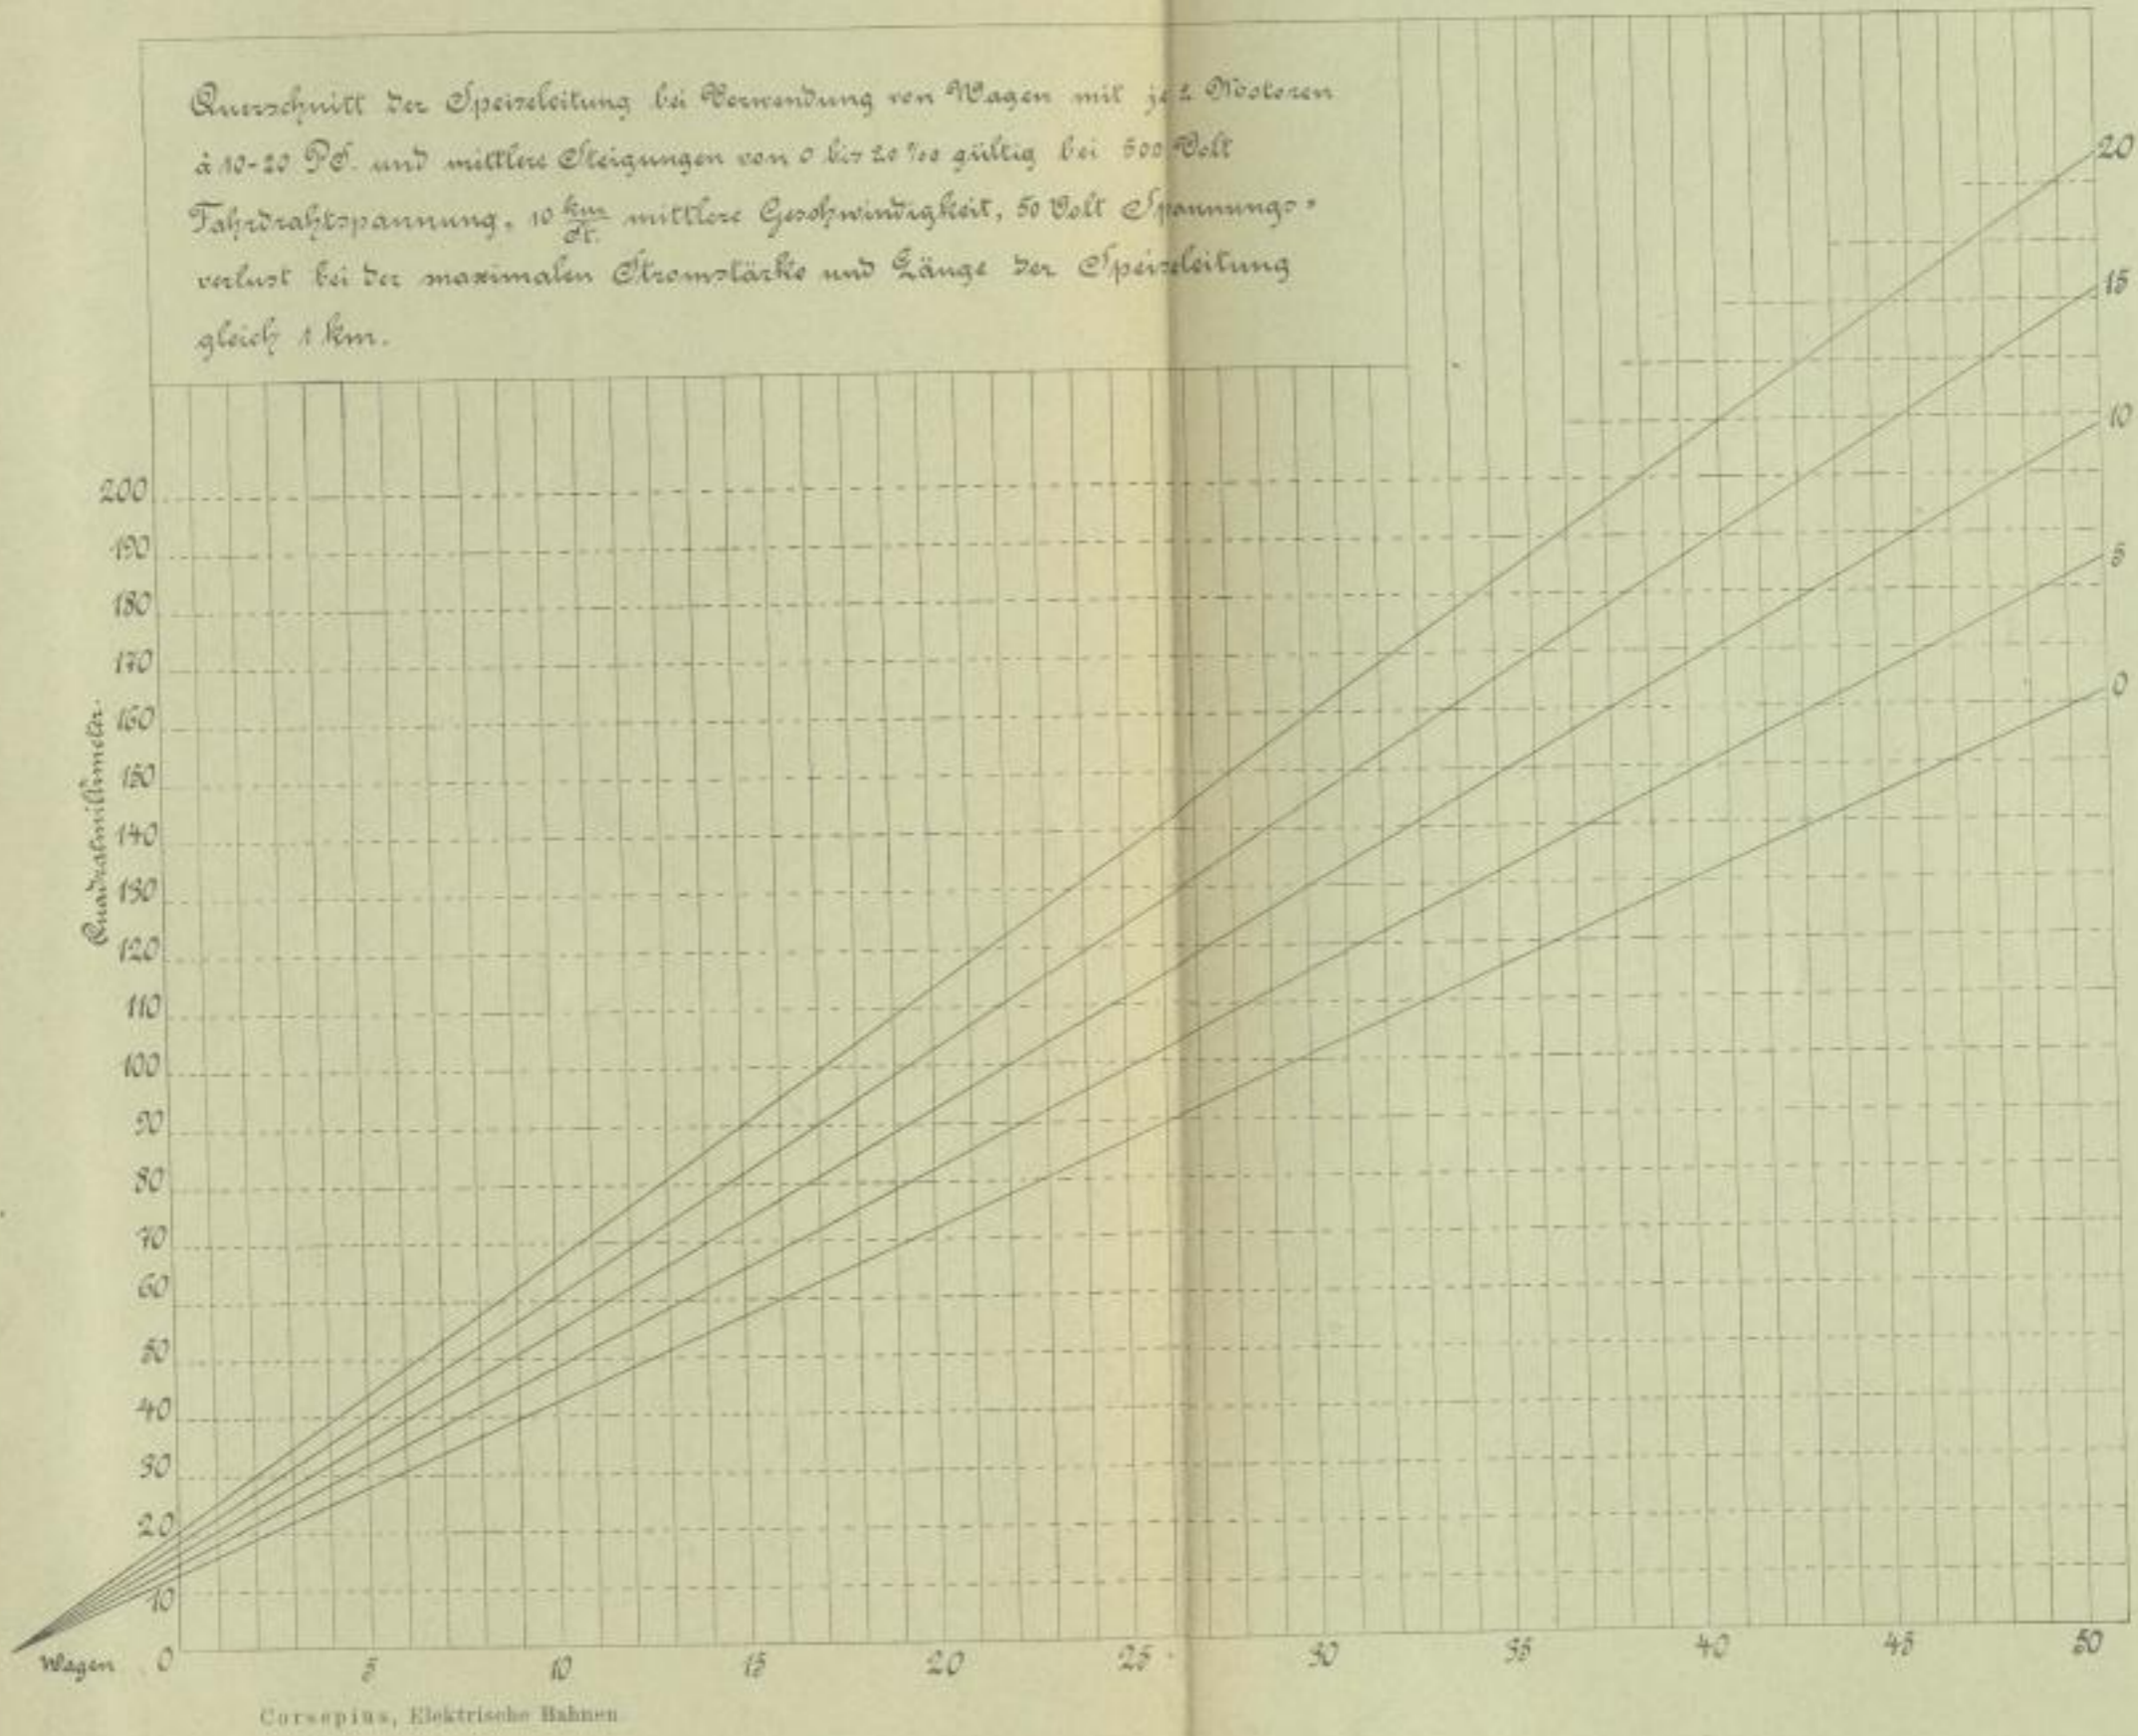 Querschnitt der Speiseleitung bei Verwendung von Wagen mit je 2 Motoren
à 10-20 PS. und mittlere Steigungen von 0 bis 20‰ gültig bei 500 Volt
Fahrdrahtspannung, 10 km/St. mittlere Geschwindigkeit, 50 Volt Spannungs-
verlust bei der maximalen Stromstärke und Länge der Speiseleitung
gleich 1 km.
20
15
10
5
0
Quadratmillimeter.
200
190
180
170
160
150
140
130
120
110
100
90
80
70
60
50
40
30
20
10
Wagen 0 5 10 15 20 25 30 35 40 45 50
Corsepius, Elektrische Bahnen